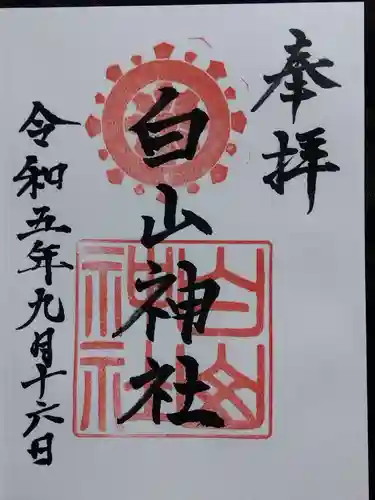 奉拝
白山神社
令和五年九月十六日
白山
神社